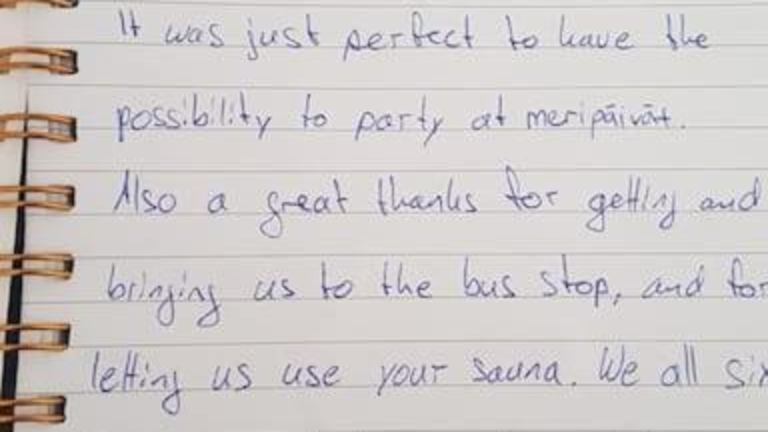 It was just perfect to have the
possibility to party at meripäivät.
Also a great thanks for getting and
bringing us to the bus stop, and for
letting us use your sauna. We all six